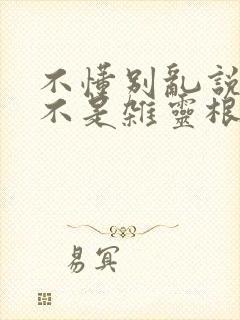 不懂別亂說
不是雜靈根
易冥